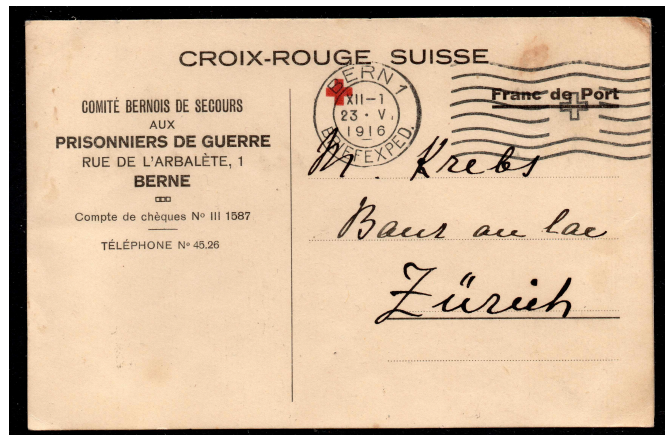 CROIX-ROUGE SUISSE
COMITÉ BERNOIS DE SECOURS
AUX
PRISONNIERS DE GUERRE
RUE DE L'ARBALÈTE, 1
BERNE
Compte de chèques Nº III 1587
TÉLÉPHONE Nº 45.26
BERN 1
XII-1
23·V.
1916
BRIEFEXPED.
Franc de Port
M. Krebs
Baur au lac
Zürich